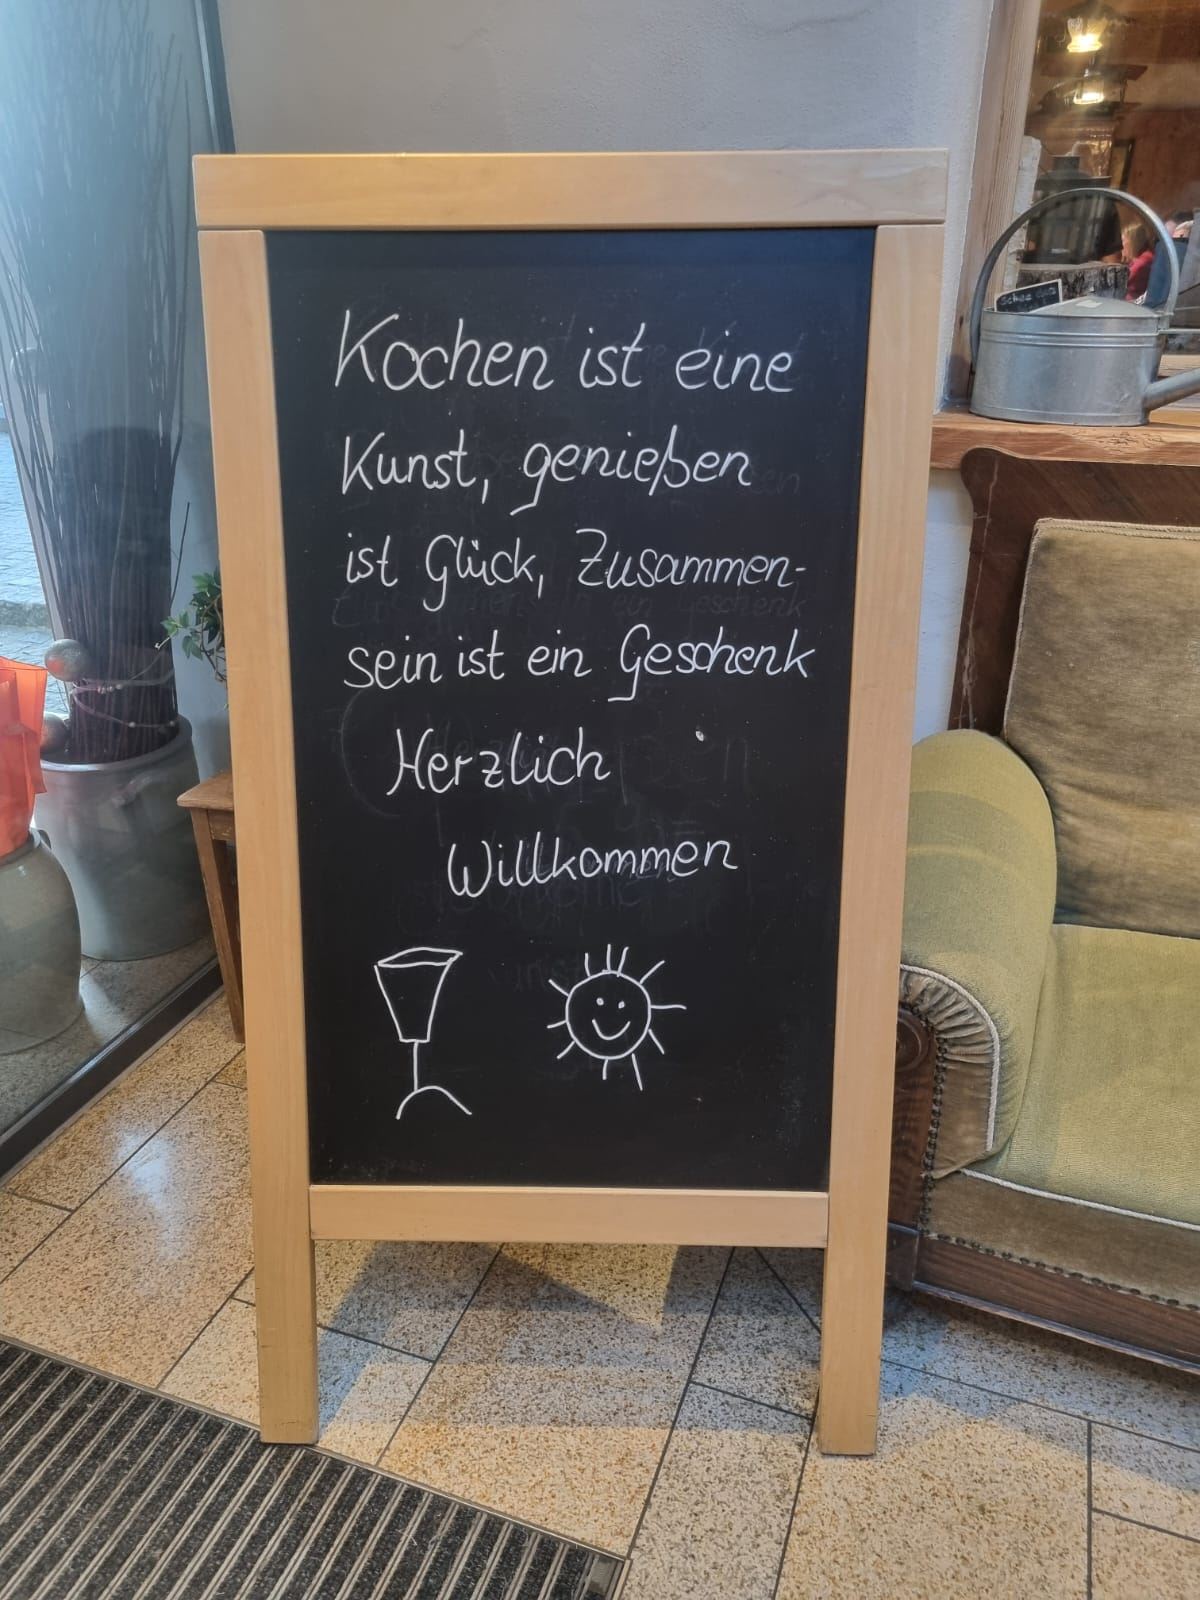 Kochen ist eine
Kunst, genießen
ist Glück, Zusammen-
sein ist ein Geschenk
Herzlich
Willkommen